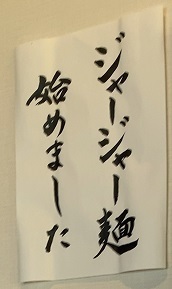 ジャージャー麺
始めました